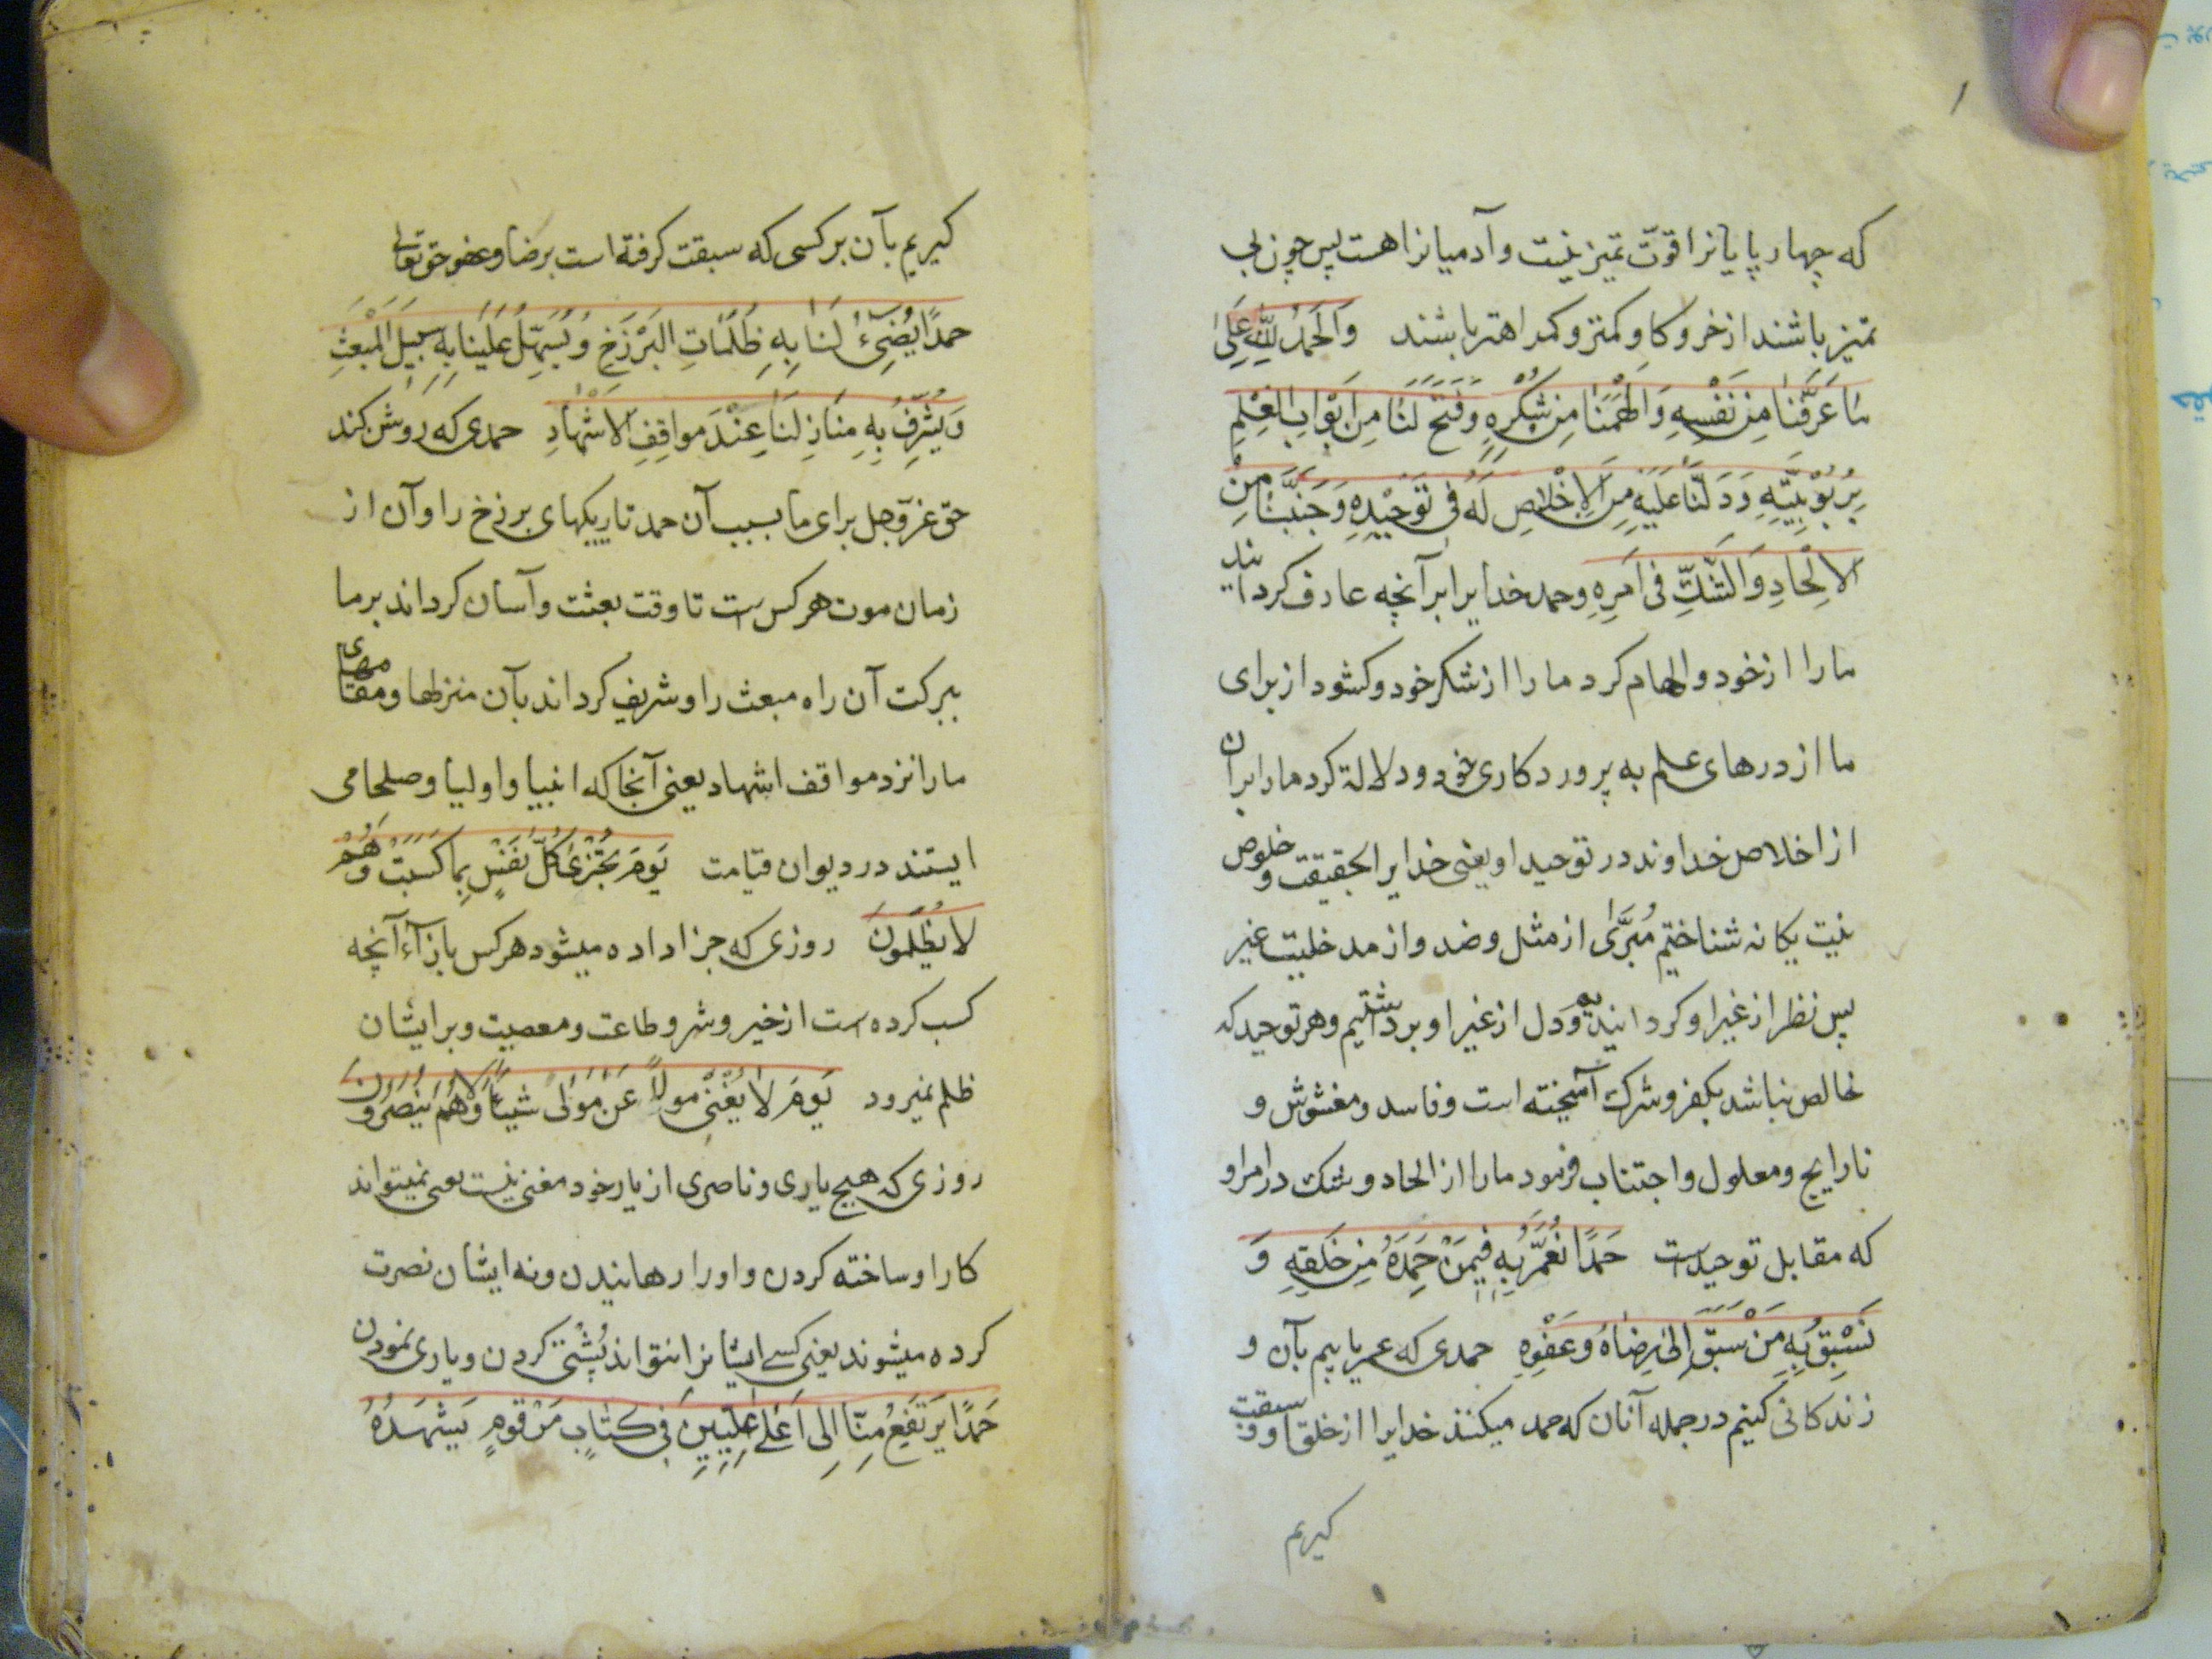 که چهار پایانرا قوّت تمیز نیست و آدمیانرا هست پس چون بی
تمیز باشند از خر و کاو کمتر و کمراهتر باشند وَالحَمدُ لِلّهِ عَلی
مٰا عَرَّفَنٰا مِن نَفْسِهِ وَاَلْهَمَنٰا مِن شُکْرِهِ وَفَتَحَ لَنٰا مِن اَبْوٰابِ العِلْمِ
بِرُبُوْبِیَّتِهِ وَدَلَّنٰا عَلَیْهِ مِنَ الاِخْلاصِ لَهُ فی تَوْحِیْدِهِ وَجَنَّبَنٰا مِنَ
الاِلْحادِ وَالشَّکِّ فی اَمرِهِ و حمد خدایرا برآنچه عارف کردانید
مارا از خود و الهام کرد مارا از شکر خود و کشود از برای
ما از درهای علم به پروردکاری خود و دلالة کرد مارا بران
از اخلاص خداوند در توحید او یعنی خدایرا بحقیقت و خلوص
نیت یکانه شناختیم مُبَرّیٰ از مثل و ضد و از مدخلیت غیر
پس نظر از غیر او کردانیدیم و دل از غیر او برداشتیم و هر توحید که
خالص نباشد بکفر و شرک آمیخته است و فاسد و مغشوش و
نارایج و معلول و اجتناب فرمود مارا از الحاد و شک در امر او
که مقابل توحیدست حَمدًا نُعَمَّرُ بِهِ فِیمَنْ حَمِدَهُ مِن خَلقِهِ وَ
نَسْبِقُ بِهِ مَنْ سَبَقَ اِلیٰ رِضاهُ وعَفْوِهِ حمدی که عمر یابیم بآن و
زندکانی کنیم در جمله آنان که حمد میکنند خدایرا از خلق او و سبقت
کیریم
کیریم بآن بر کسی که سبقت کرفة است بر رضا و عفو حق تعالی
حمدًا یُضِیءُ لَنٰا بِهِ ظُلُمٰاتِ البَرْزَخِ وَیُسَهِّلُ عَلَینٰا بِهِ سَبیلَ المَبْعَثِ
وَیُشَرِّفُ بِهِ مَنٰازِلَنٰا عِنْدَ مواقِفِ الاَشْهٰادِ حمدی که روشن کند
حق عزّوجل برای ما بسبب آن حمد تاریکهای برزخ را و آن از
زمان موت هر کس است تا وقت بعثت و آسان کرداند بر ما
ببرکت آن راه مبعث را و شریف کرداند بآن منزلها و مقامهای
مارا نزد مواقف اشهاد یعنی آنجا که انبیا و اولیا و صلحا می
ایستند در دیوان قیامت یَومَ تُجْزیٰ کُلُّ نَفْسٍ بِمٰا کَسَبَتْ وَهُمْ
لا یُظْلَمُونَ روزی که جزا داده میشود هر کس بازآء آنچه
کسب کرده است از خیر و شر و طاعت و معصیت و بر ایشان
ظلم نمیرود یَومَ لا یُغْنی مولاً عَنْ مَوْلیٰ شَیئًا وَلاهُم یُنصَرُونَ
روزی که هیچ یاری و ناصری از یار خود مغنی نیست یعنی نمیتواند
کار او ساخته کردن و اورا رهانیدن و نه ایشان نصرت
کرده میشوند یعنی کسے ایشانرا نتواند پُشْتی کردن و یاری نمودن
حَمدًا یَرتَفِعُ مِنّٰا اِلی اَعْلیٰ عِلِّیِینَ فی کِتٰابٍ مَرْقومٍ یَشْهَدُهُ